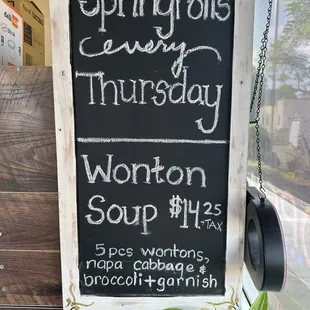 Springrolls
every
Thursday
Wonton
Soup $14.25
+TAX
5pcs wontons,
napa cabbage &
broccoli + garnish